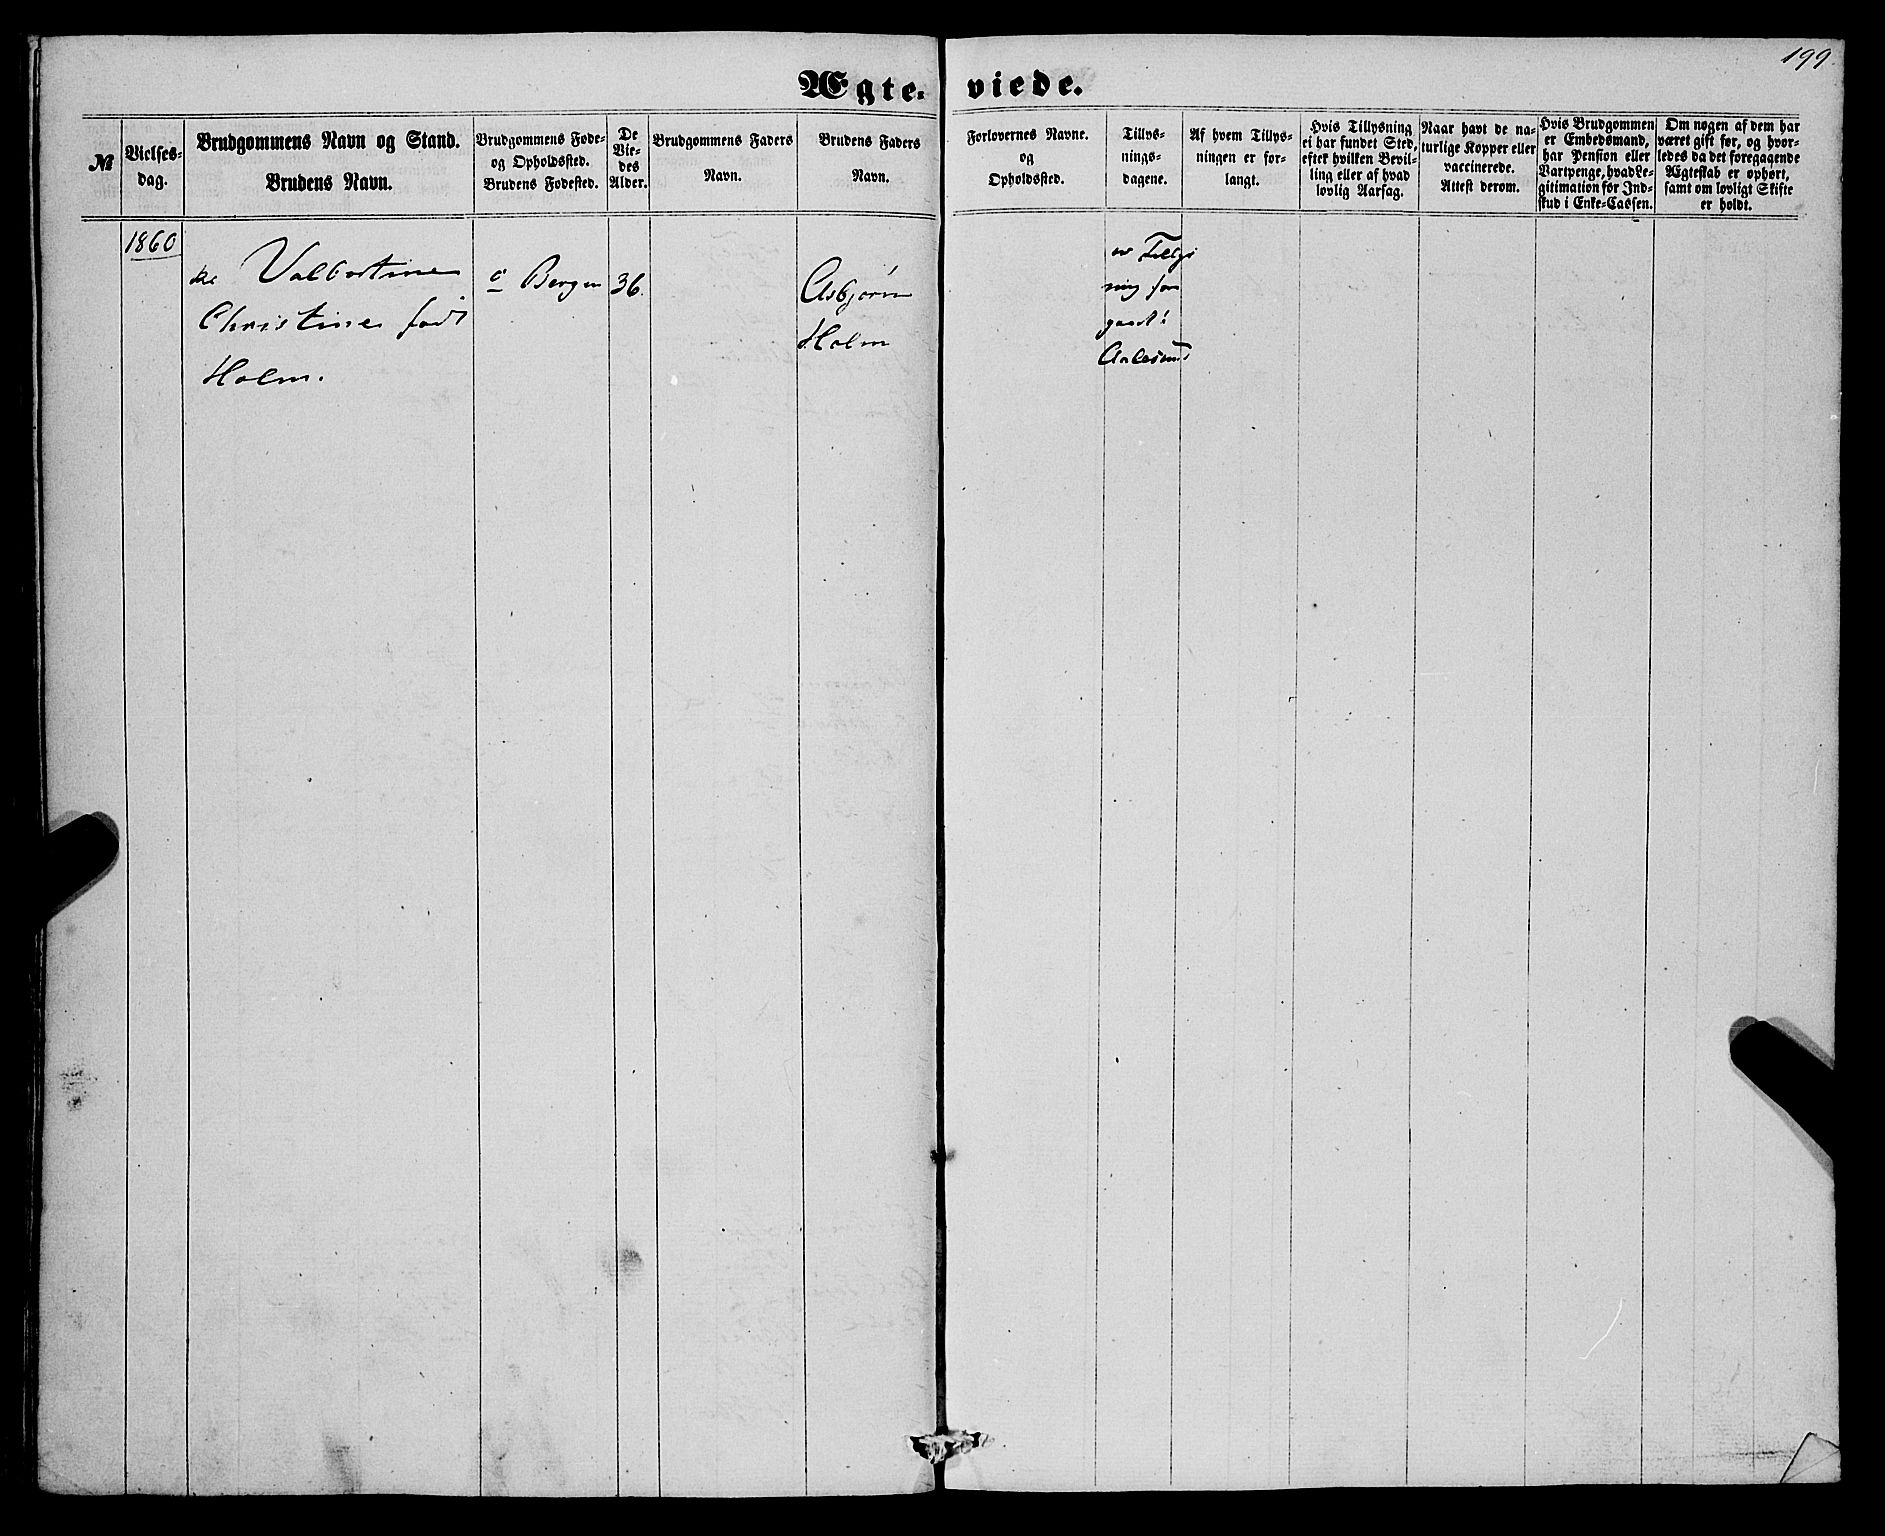 199.
Ægte- viede.
№
Vielses-
dag.
Brudgommens Navn og Stand.
Brudens Navn.
Brudgommens Føde-
og Opholdssted.
Brudens Fødested.
De
Vie-
des
Alder.
Brudgommens Faders
Navn.
Brudens Faders
Navn.
Forlovernes Navne.
og
Opholdssted.
Tillys-
nings-
dagene.
Af hvem Tillys-
ningen er for-
langt.
Hvis Tillysning
ei har fundet Sted,
efter hvilken Bevil-
ling eller af hvad
lovlig Aarsag.
Naar havt de na-
turlige Kopper eller
vaccinerede.
Attest derom.
Hvis Brudgommen
er Embedsmand,
har Pension eller
Vartpenge, hvad Le-
gitimation for Ind-
skud i Enke-Cassen.
Om nogen af dem har
været gift før, og hvor-
ledes da det foregaaende
Ægteskab er ophørt,
samt om lovligt Skifte
er holdt.
1860
Christine født
Holm.
Bergen
36.
Asbjørn
Holm